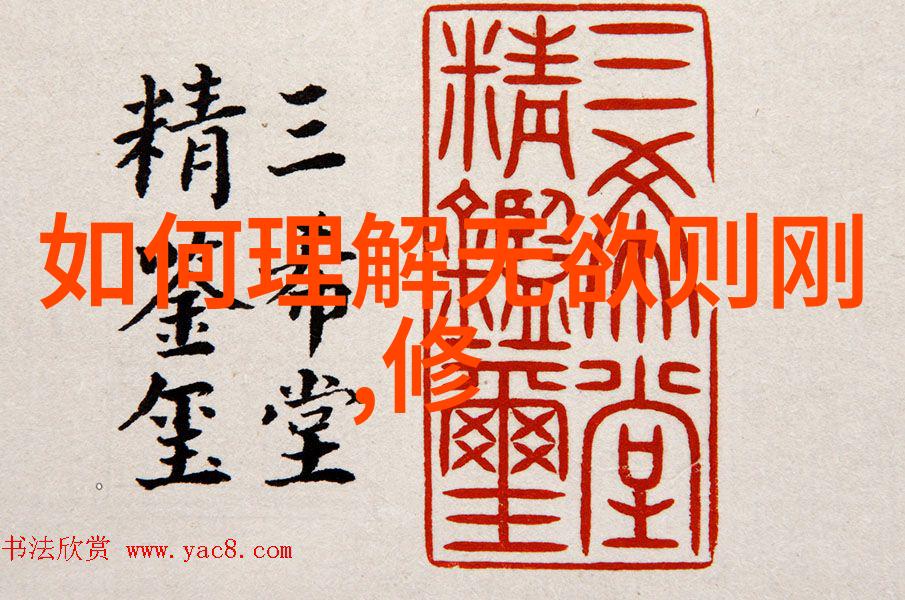 三希堂
精鉴玺
三希堂
精鑑璽
如何理解无欲则刚
,修
书法欣赏 www.yac8.com